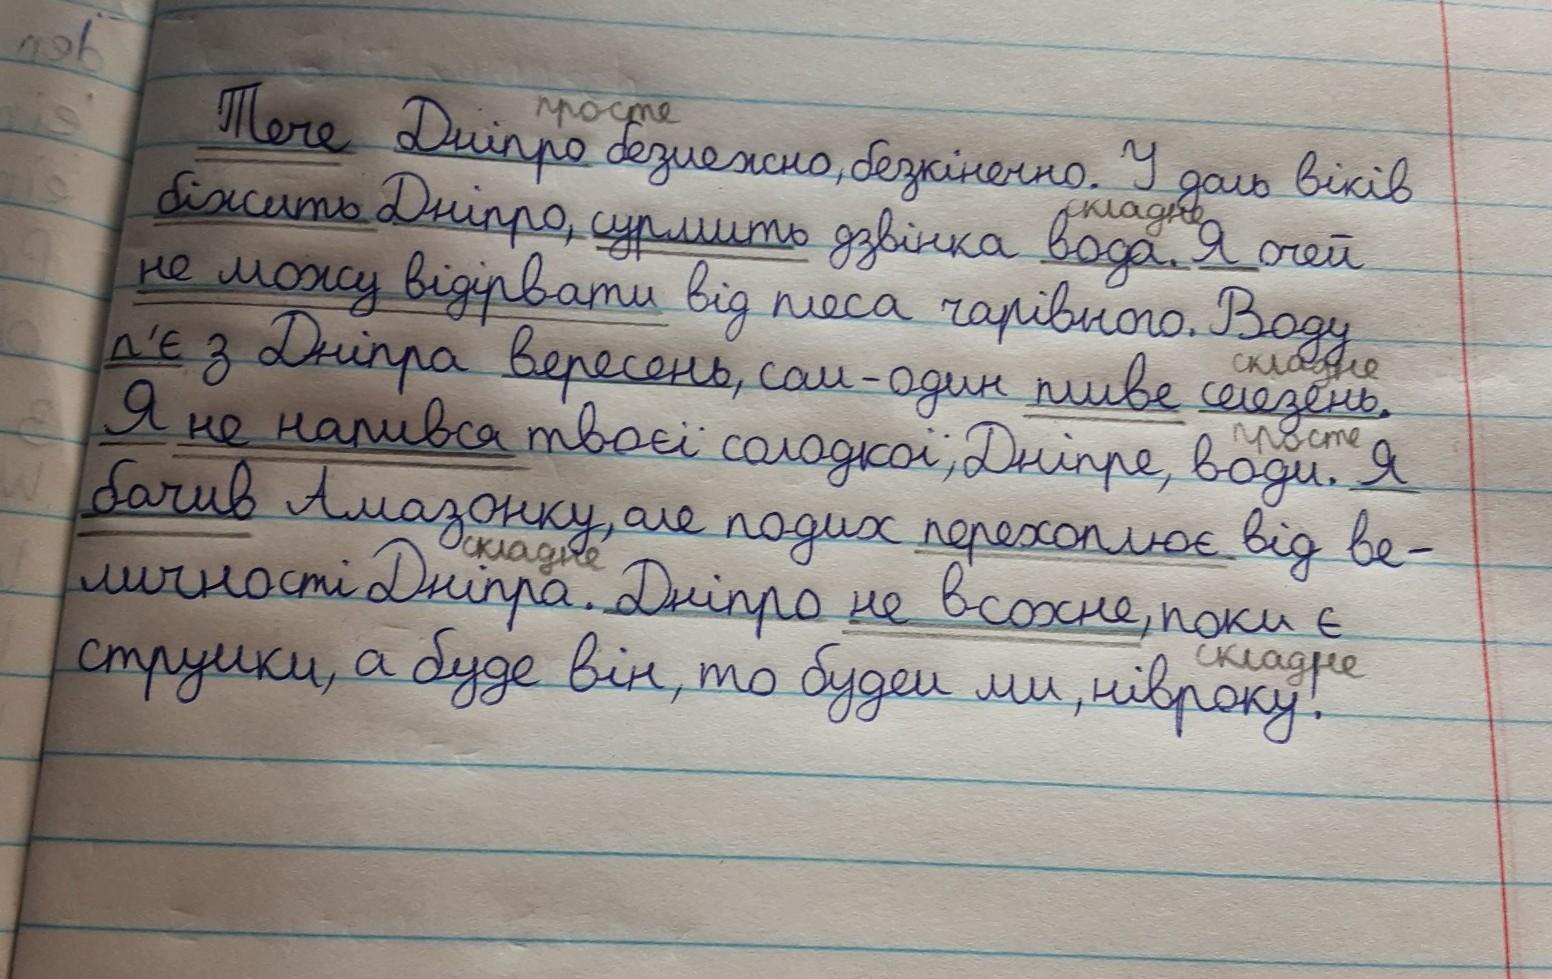 просте
Тече Дніпро безмежно, безкінечно. У даль віків
складне
біжить Дніпро, сурмить дзвінка вода. Я очей
не можу відірвати від плеса чарівного. Воду
складне
п'є з Дніпра вересень, сам-один пливе селезень.
просте
Я не напився твоєї солодкої, Дніпре, води. Я
бачив Амазонку, але подих перехоплює від ве-
складне
личності Дніпра. Дніпро не всохне, поки є
складне
струмки, а буде він, то будем ми, нівроку!